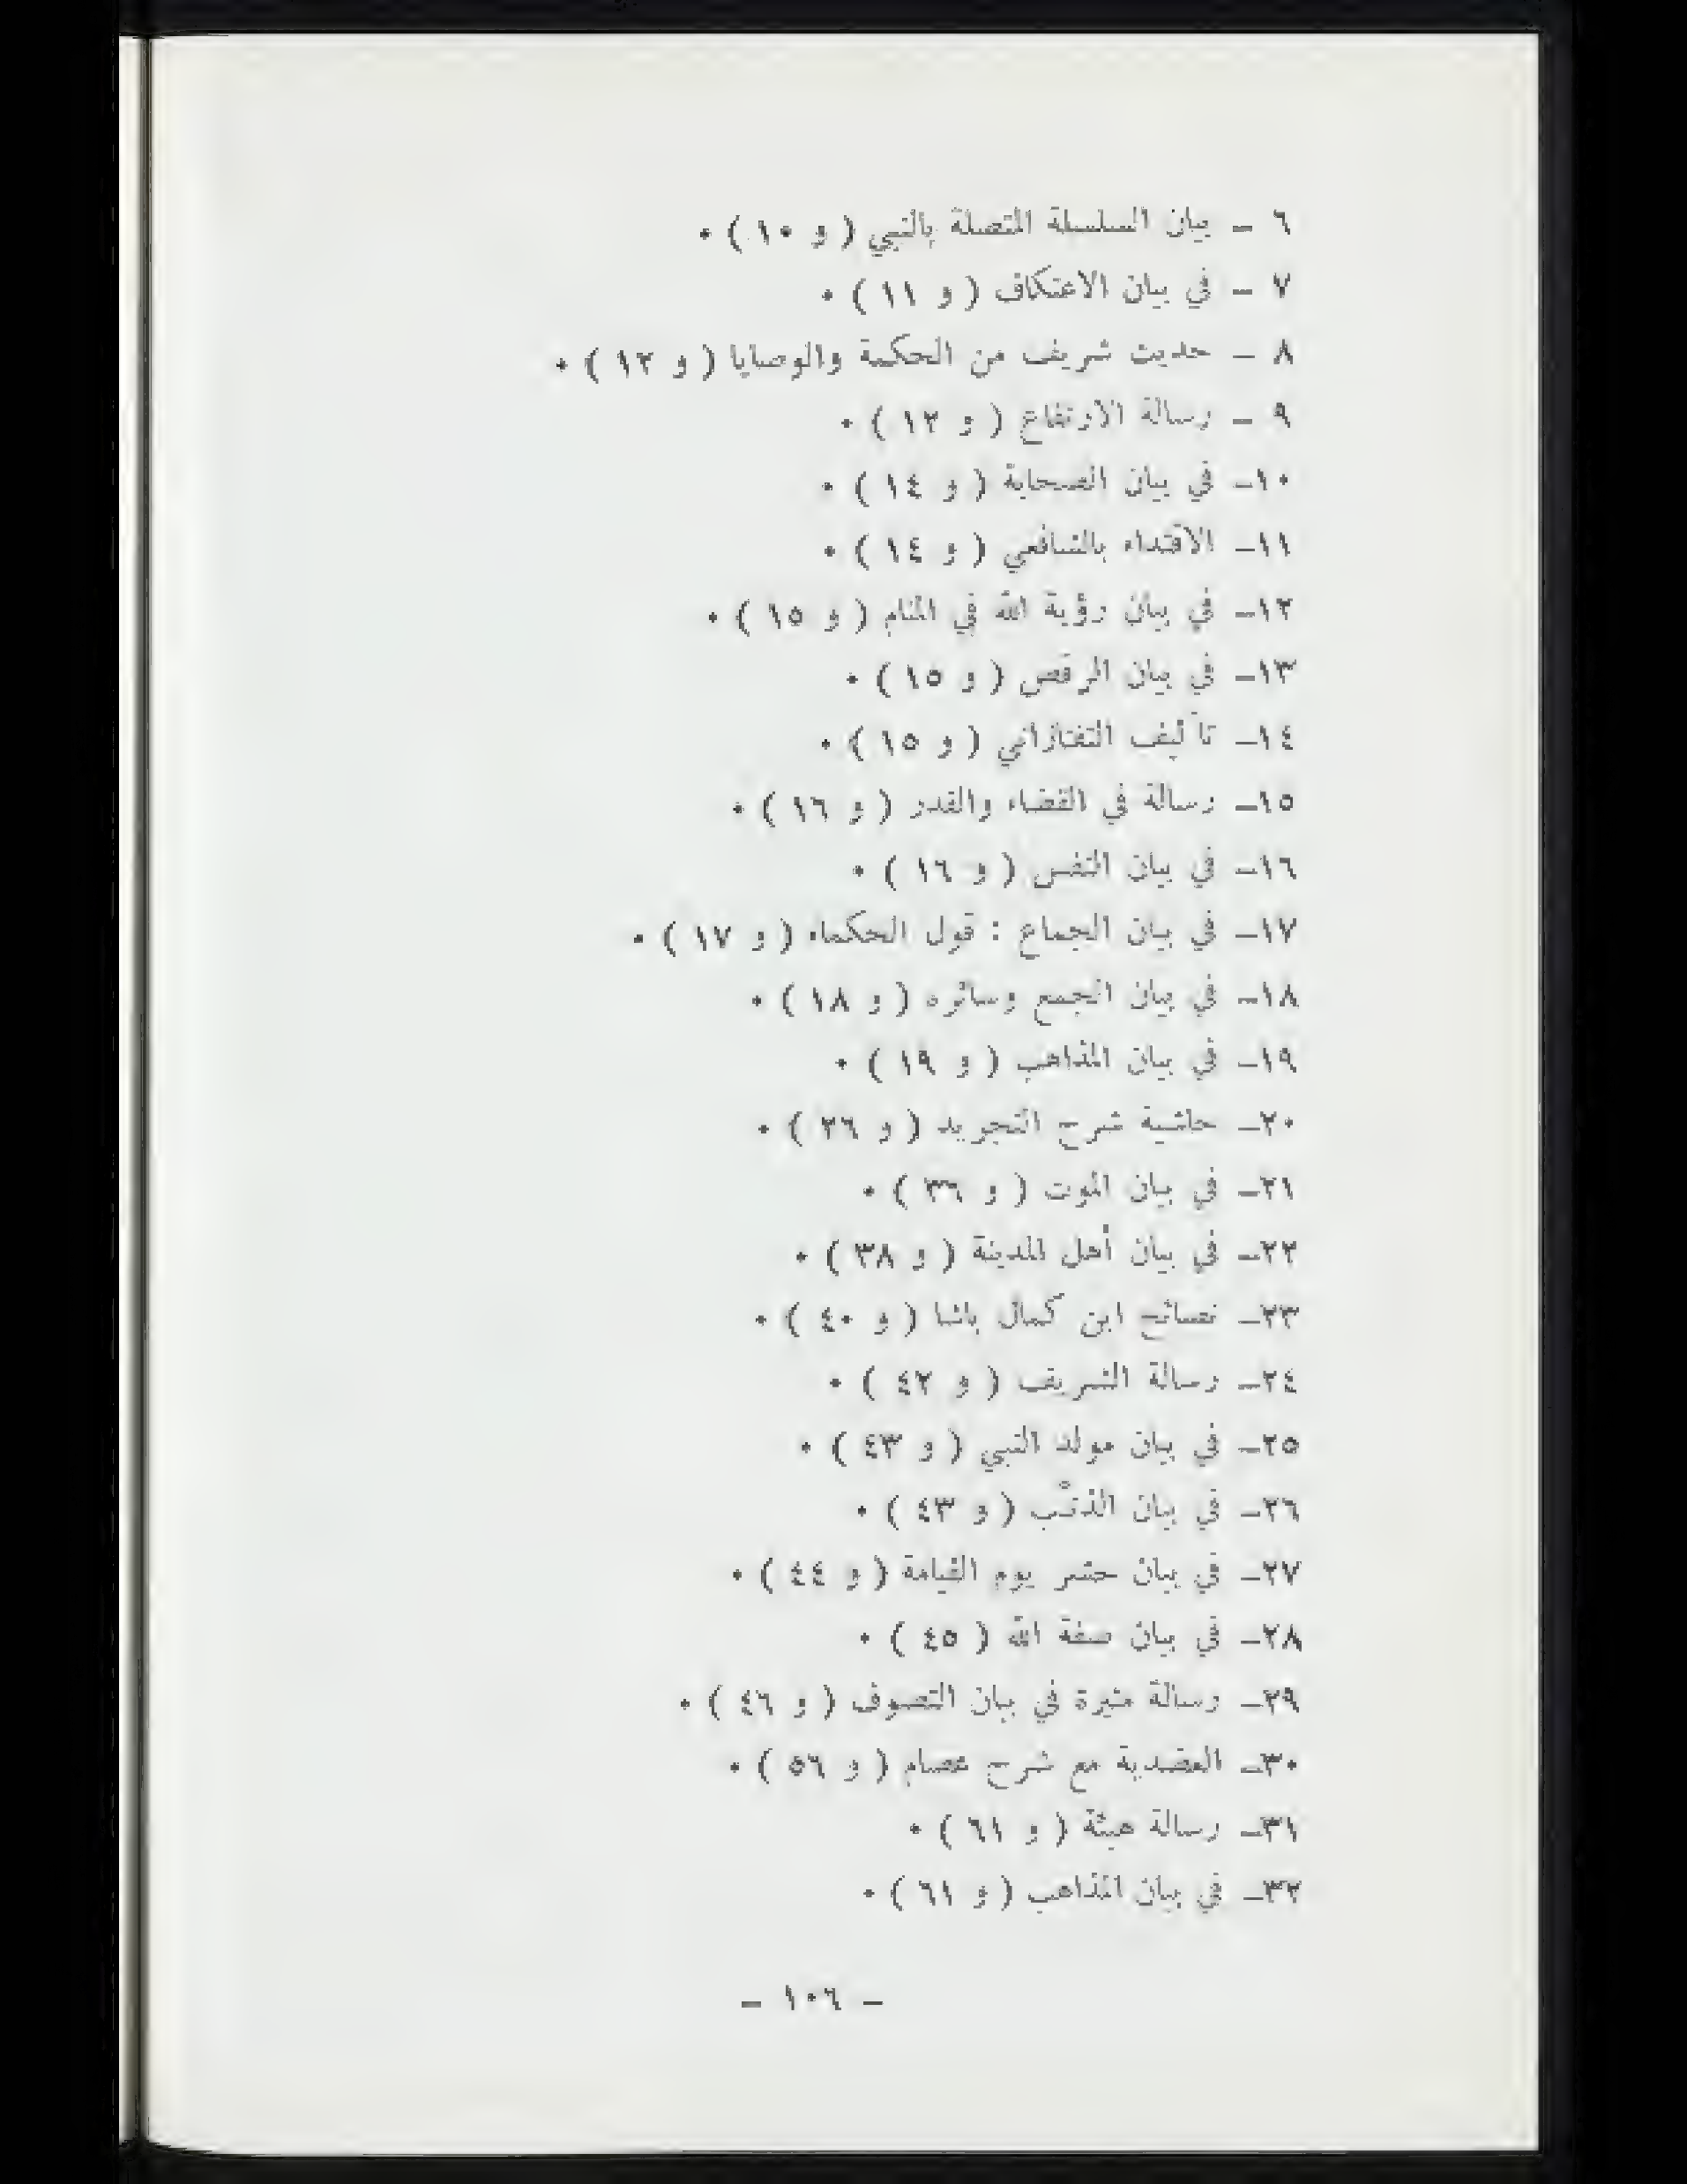 ٦ ــ بيان السلسلة المتصلة بالنبي ( و ١٠ ) ٠
٧ ــ في بيان الاعتكاف ( و ١١ ) ٠
٨ ــ حديث شريف من الحكمة والوصايا ( و ١٢ ) ٠
٩ ــ رسالة الارتفاع ( و ١٢ ) ٠
١٠ــ في بيان الصحابة ( و ١٤ ) ٠
١١ــ الاقتداء بالشافعي ( و ١٤ ) ٠
١٢ــ في بيان رؤية الله في المنام ( و ١٥ ) ٠
١٣ــ في بيان الرقص ( و ١٥ ) ٠
١٤ــ تآليف التفتازاني ( و ١٥ ) ٠
١٥ــ رسالة في القضاء والقدر ( و ١٦ ) ٠
١٦ــ في بيان النفس ( و ١٦ ) ٠
١٧ــ في بيان الجماع : قول الحكماء ( و ١٧ ) ٠
١٨ــ في بيان الجمع وسائره ( و ١٨ ) ٠
١٩ــ في بيان المذاهب ( و ١٩ ) ٠
٢٠ــ حاشية شرح التجريد ( و ٢٦ ) ٠
٢١ــ في بيان الموت ( و ٣٦ ) ٠
٢٢ــ في بيان أهل المدينة ( و ٣٨ ) ٠
٢٣ــ نصائح ابن كمال باشا ( و ٤٠ ) ٠
٢٤ــ رسالة الشريف ( و ٤٢ ) ٠
٢٥ــ في بيان مولد النبي ( و ٤٣ ) ٠
٢٦ــ في بيان الذنْب ( و ٤٣ ) ٠
٢٧ــ في بيان حشر يوم القيامة ( و ٤٤ ) ٠
٢٨ــ في بيان صفة الله ( ٤٥ ) ٠
٢٩ــ رسالة منيرة في بيان التصوف ( و ٤٦ ) ٠
٣٠ــ العضدية مع شرح عصام ( و ٥٦ ) ٠
٣١ــ رسالة هيئة ( و ٦١ ) ٠
٣٢ــ في بيان المذاهب ( و ٦١ ) ٠
ــ ١٠٦ ــ